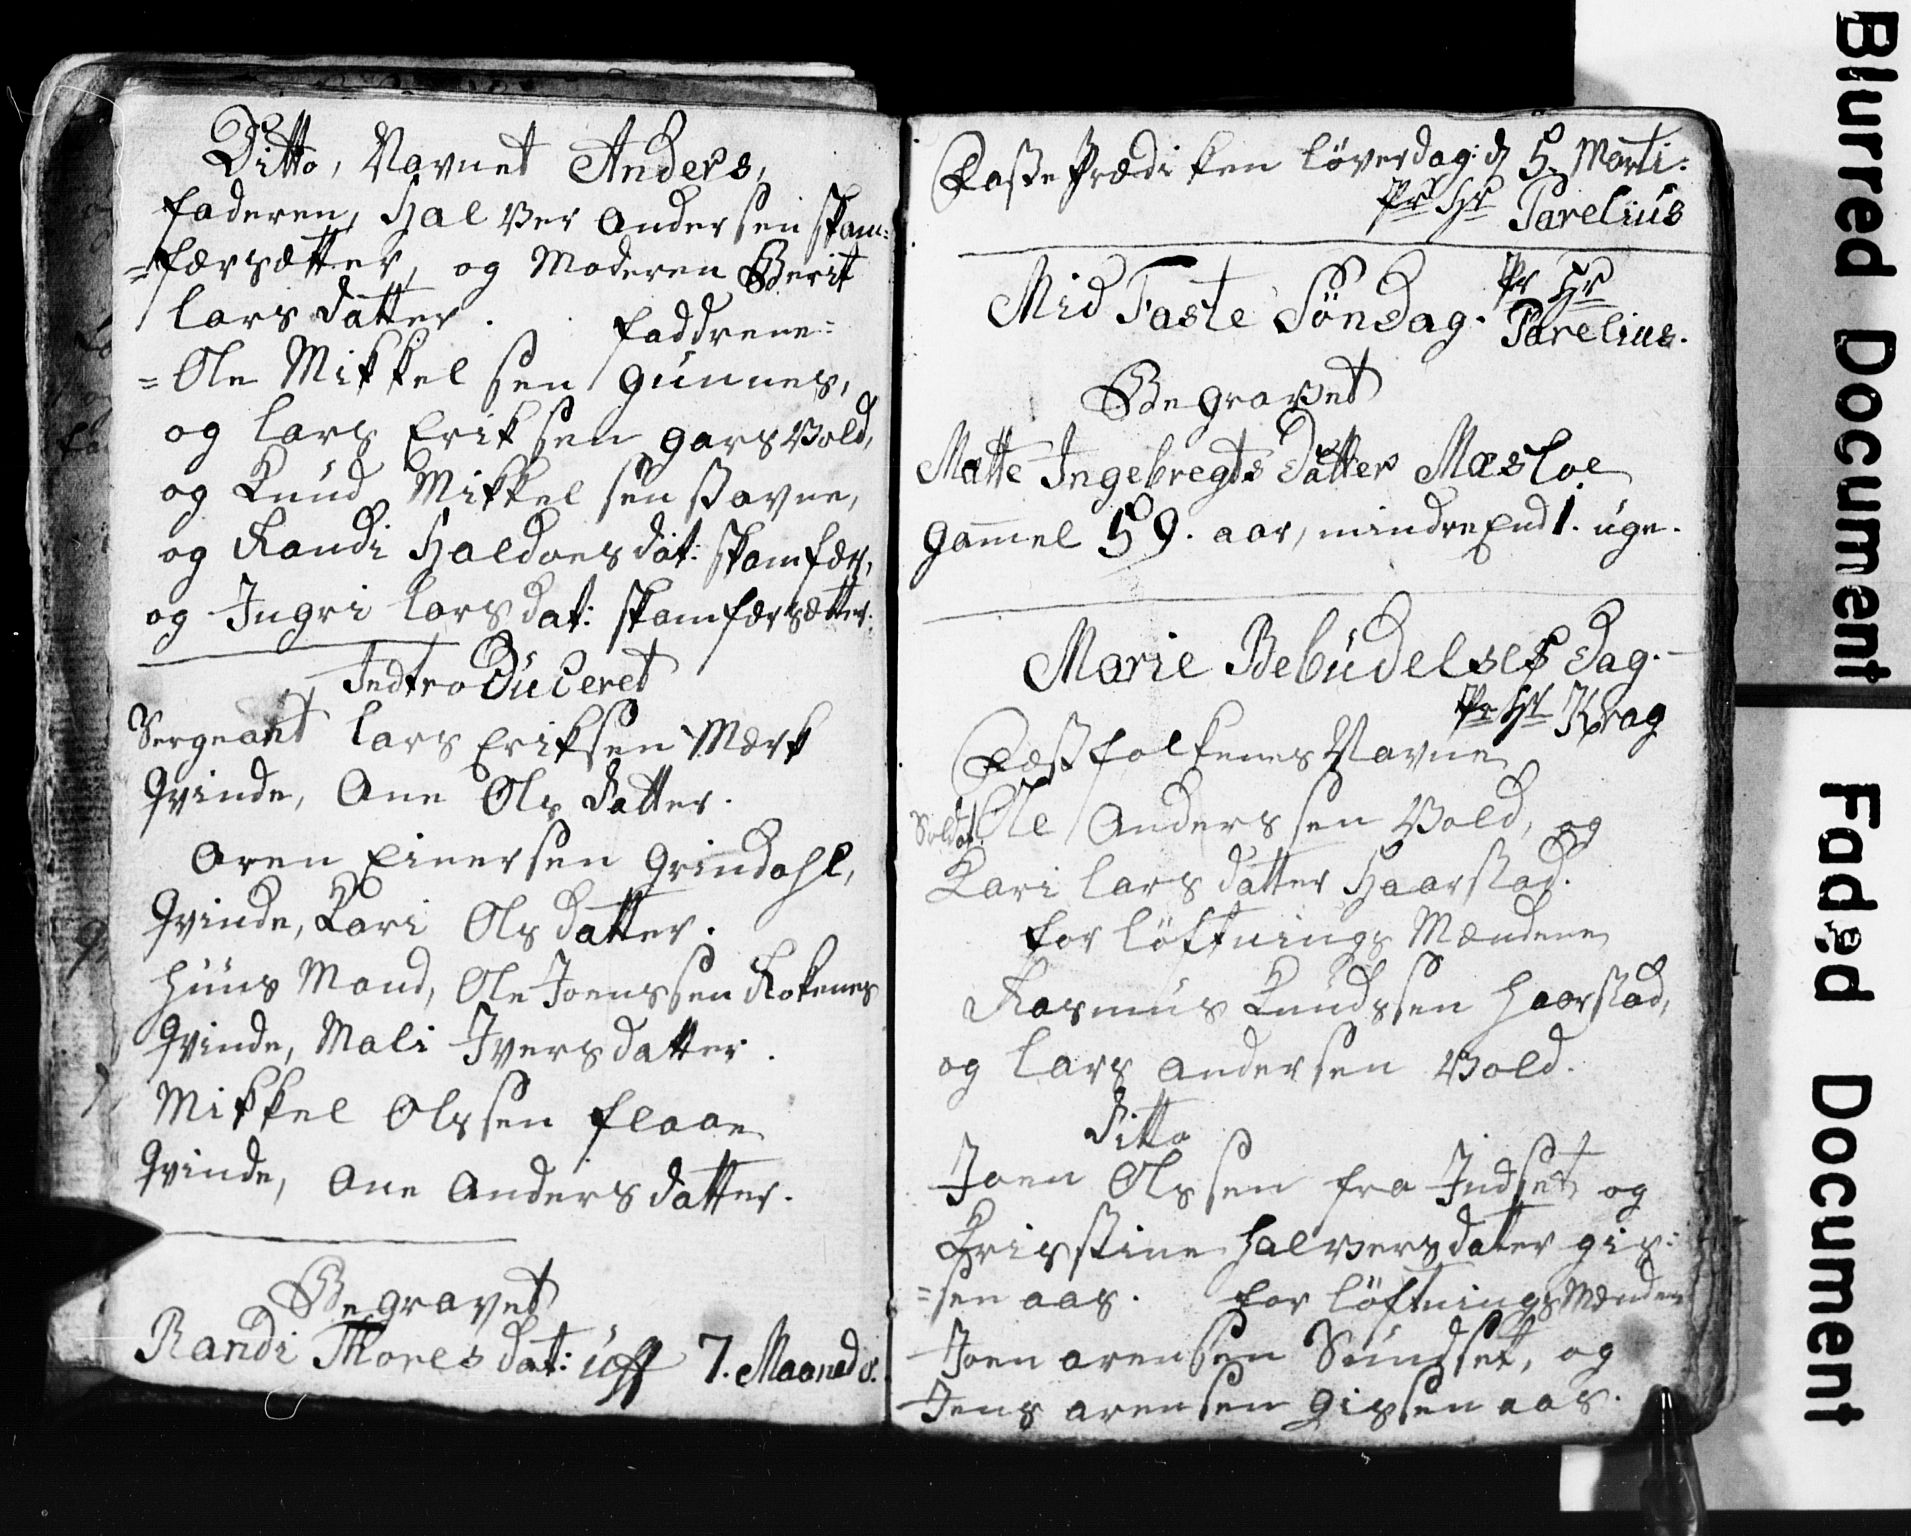 Ditto, Navnet Anders,
faderen, Halver Andersen skam=
=færsætter, og Moderen Berit
Lars datter. faddrene=
=Ole Mikkel sen gunnes,
og Lars Erik sen garsvold,
og Knud Mikkel sen stavne,
og Randi Haldoes dat: skamfær,
og Ingri Lars dat: skamfærsætter.
Indtroduceret
Sergeant Lars Eriksen Mærk
Qvinde, Ane Ols datter.
Aren Einersen Grindahl,
Qvinde, Kari Ols datter.
Huus Mand, Ole Joenssen Rokenes
Qvinde, Mali Ivers datter.
Mikkel Olssen flaae
Qvinde, Ane Anders datter.
Begravet
Randi Thores dat: Uff 7. Maaneds.
Faste Prædiken löverdag: d 5. Marti:
Pr Hr Parelius
Mid Faste Söndag. Pr Hr
Parelius.
Begravet
Mætte Ingebregts datter Mæsloe
gammel 59. aar, mindre End 1. uge.
Marie Bebudelses dag.
Pr Hr Krag
Fæstfolkenes Navne
Soldat Ole Anderssen Vold, og
Kari Lars datter Haarstad.
for löftnings Mændene
Rasmus Knudssen Haarstad,
og Lars Andersen Vold.
Ditto
Joen Olssen fra Indset og
Kristine Halvers datter gis=
=sen aas. for löftnings Mænden
Joen arensen Sundset, og
Jens arensen gissen aas.
Blurred Document
Faded Document